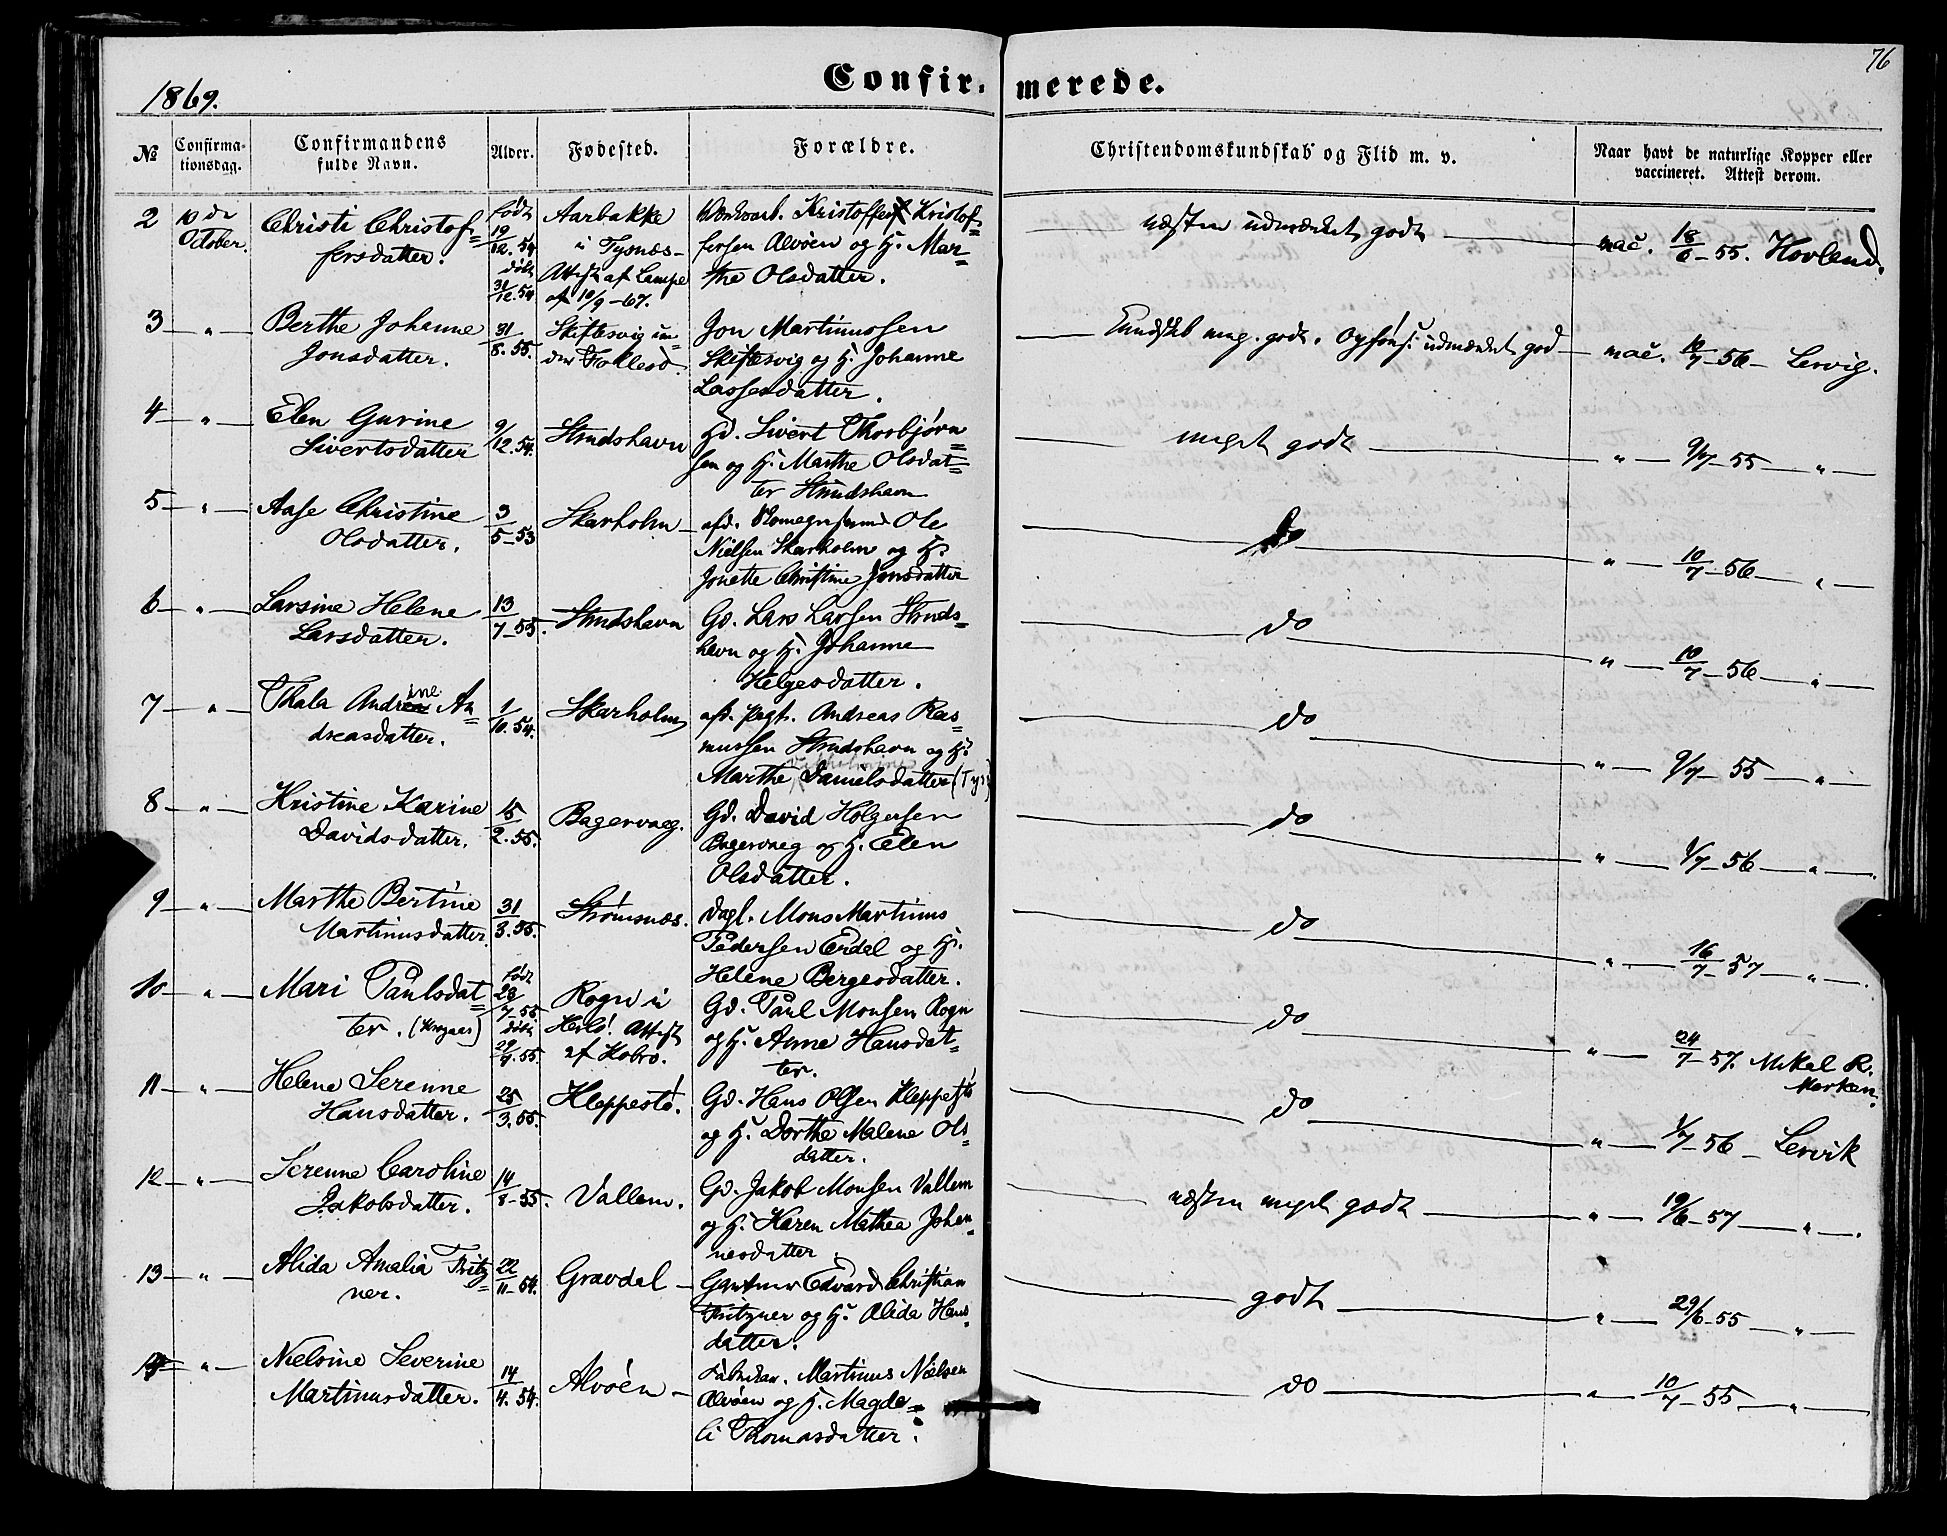 76
1869.
Confirmerede.
№ Confirmationsdag. Confirmandens fulde Navn. Alder. Fødested. Forældre. Christendomskundskab og Flid m. v. Naar havt de naturlige Kopper eller vaccineret. Attest derom.
2 10de October. Christi Christoffersdatter. født 19/12. 54 døbt 31/12. 54 Aarbakke i Tysnæs - Attest af Lampe af 10/9-67. Kristoffer Kristoffersen Alvöen og H. Marthe Olsdatter. næsten udmærket godt vac. 18/6-55. Hovland.
3 " Berthe Johanne Jonsdatter. 31/8. 55. Skiftesvig under Jon Martinussen Skiftesvig og H. Johanne Lassesdatter. Kundskab meg. godt. Opførs. udmærket god vac. 10/7-56- Lervig.
4 " Elen Gurine Sivertsdatter 9/12. 54. Strudshavn Gd. Sivert Thorbjørnsen og H. Marthe Olsdatter Strudshavn meget godt " 9/7-55 "
5 " Aase Christine Olsdatter. 3/5-53 Skarholm afd. Ole Nielsen Skarholm og H. Jonette Christine Jonsdatter do " 10/7-56 "
6 " Larsine Helene Larsdatter. 13/7-55. Strudshavn Gd. Lars Larsen Strudshavn og H. Johanne Helgesdatter. do " 10/7-56 "
7 " Thala Andrine Andreasdatter. 1/10. 54. Skarholm afd. Pagt. Andreas Rasmussen Strudshavn og H. Marthe Danielsdatter (Tys) do " 9/7-55 "
8 " Kristine Karine Davidsdatter. 15/2. 55. Bagervaag. Gd. David Holgersen Bagervaag og H. Elen Olsdatter. do " 1/7-56 "
9 " Marthe Bertine Martinusdatter. 31/3. 55. Strömsnæs. Dagl. Mons Martinus Pedersen Erdal og H. Helene Bergesdatter. do " 16/7-57 "
10 " Mari Paulsdatter. født 28/7-55 døbt 29/7. 55. Rogn i Herlø. Attest af Kobro. Gd. Paul Monsen Rogn og H. Anne Hansdatter. do " 24/7-57. Mikel R. Merken.
11 " Helene Serenne Hansdatter. 25/3. 55. Kleppestö. Gd. Hans Olsen Kleppestö og H. Dorthe Malene Olsdatter. do " 1/7-56 - Lervik
12 " Serenne Caroline Jakobsdatter. 14/8-55. Vallem. Gd. Jakob Monsen Vallem og H. Karen Mathea Johannesdatter næsten meget godt " 19/6-57 "
13 " Alida Amalia Fritzner. 22/11-54. Gravdal Gartner Edvard Christian Fritzner og H. Alida Hansdatter. godt " 29/6-55 "
14 " Nielsine Severine Martinusdatter. 14/4. 54. Alvöen Martinus Nielsen Alvöen og H. Magdeli Thomasdatter. do " 10/7-55 "